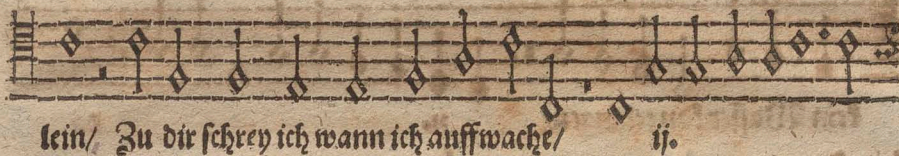 lein/ Zu dir schrey ich wann ich auffwache/ ij.